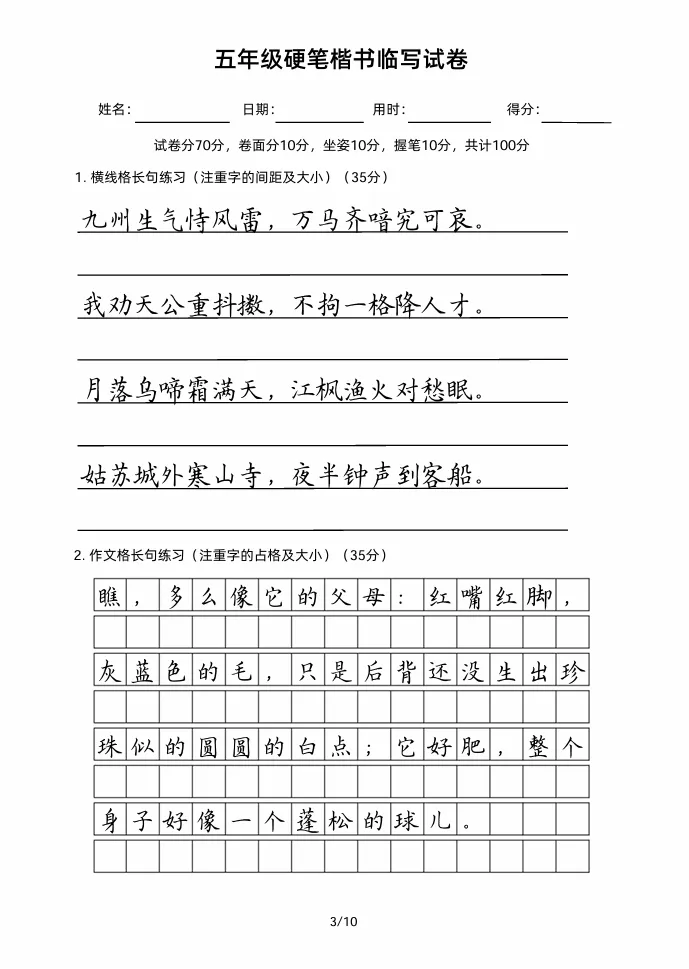 五年级硬笔楷书临写试卷
姓名： 日期： 用时： 得分：
试卷分70分，卷面分10分，坐姿10分，握笔10分，共计100分
1. 横线格长句练习（注重字的间距及大小）（35分）
九州生气恃风雷，万马齐喑究可哀。
我劝天公重抖擞，不拘一格降人才。
月落乌啼霜满天，江枫渔火对愁眠。
姑苏城外寒山寺，夜半钟声到客船。
2. 作文格长句练习（注重字的占格及大小）（35分）
瞧，多么像它的父母：红嘴红脚，
灰蓝色的毛，只是后背还没生出珍
珠似的圆圆的白点；它好肥，整个
身子好像一个蓬松的球儿。
3/10